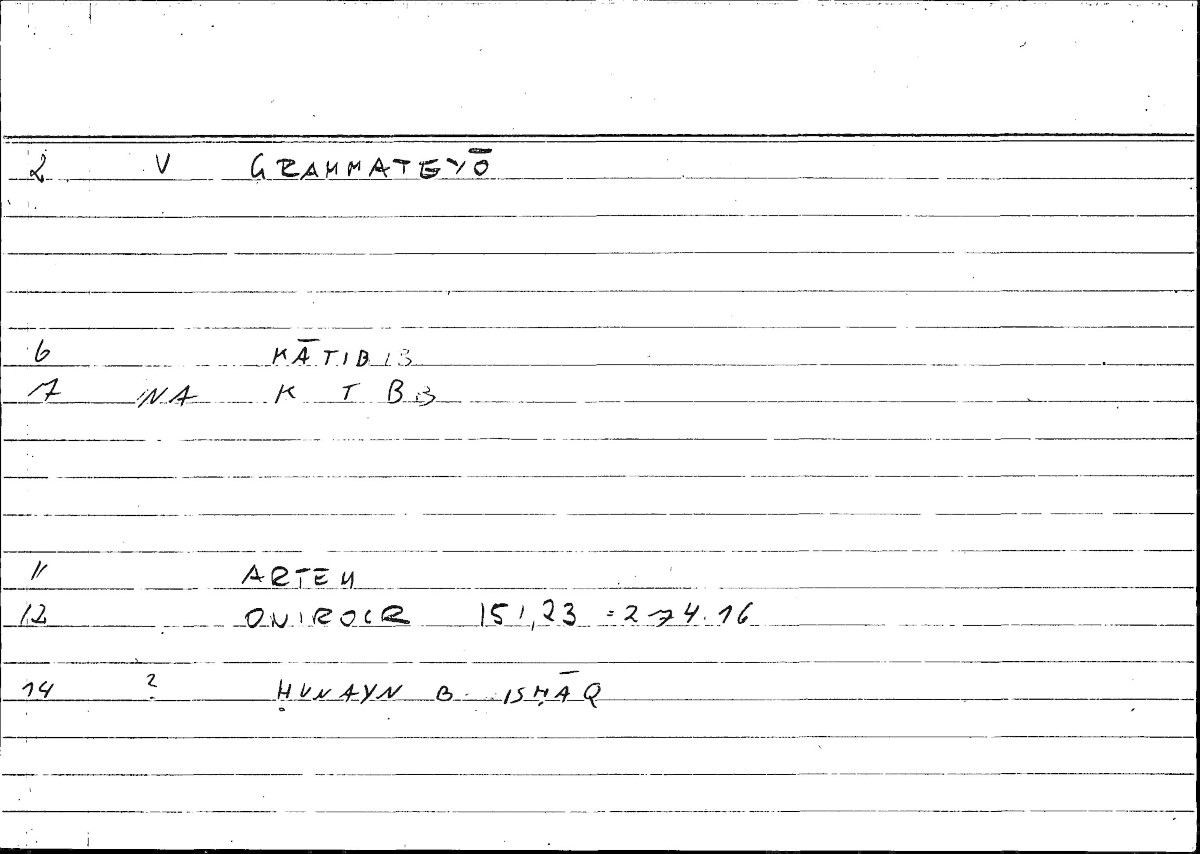 2 V GRAMMATEYŌ
6 KĀTIB 13
7 NA K T B B
11 ARTEM
12 ONIROCR 151,23 = 274.16
14 ? ḤUNAYN B. ISḤĀQ